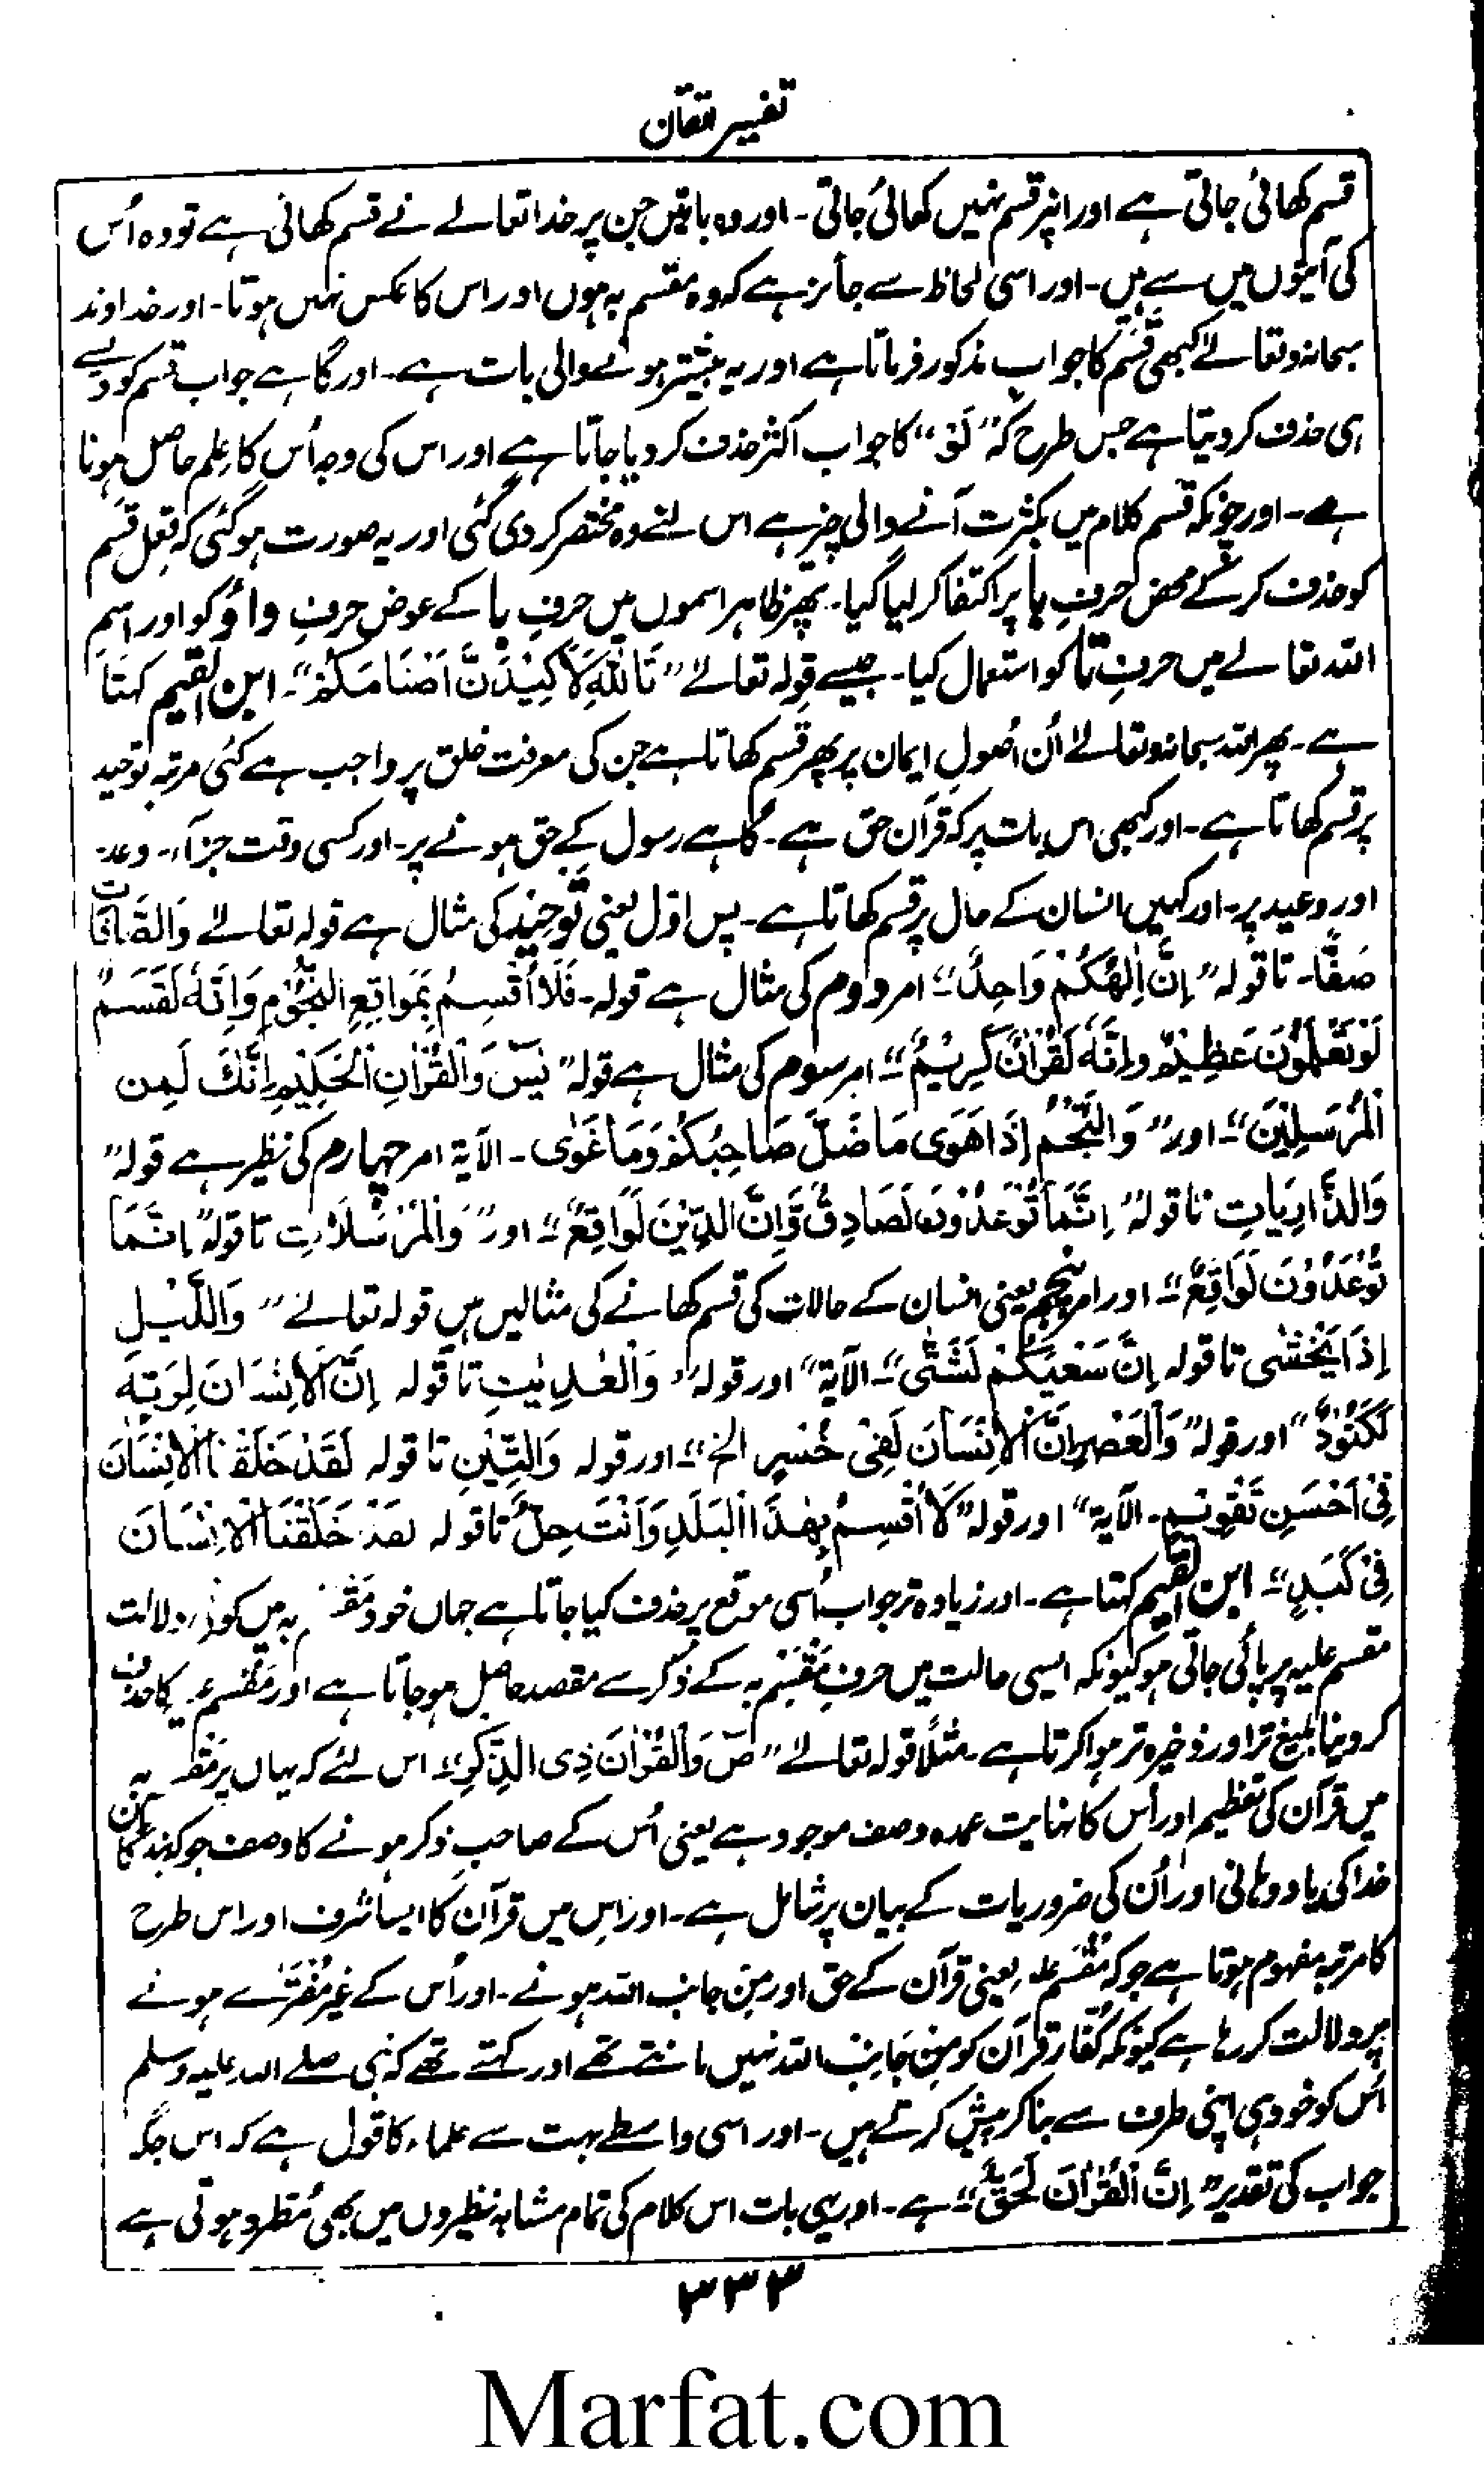 تفسیر اتقان
قسم کھائی جاتی ہے اور انپر قسم نہیں کھائی جاتی ۔ اور وہ باتیں جن پر خدا تعالےٰ نے قسم کھائی ہے تو وہ اُس
کی آیتوں میں سے ہیں۔ اور اسی لحاظ سے جائز ہے کہ وہ مقسم بہ ہوں اور اس کا عکس نہیں ہوتا۔ اور خداوند
سبحانہ وتعالےٰ کبھی قَسَم کا جواب مذکور فرماتا ہے اور یہ بیشتر ہونے والی بات ہے۔ اور گاہے جواب قسم کو ویسے
ہی حذف کر دیتا ہے جس طرح کہ ”لَوْ“ کا جواب اکثر حذف کر دیا جاتا ہے اور اس کی وجہ اُس کا عِلم حاصل ہونا
ہے۔ اور چونکہ قسم کلام میں بکثرت آنے والی چیز ہے اس لئے وہ مختصر کر دی گئی اور یہ صورت ہو گئی کہ فعِل قَسم
کو حذف کر کے محض حرفِ با پر اکتفا کر لیا گیا۔ پھر ظاہر اسموں میں حرفِ با کے عوض حرفِ واؤ کو اور اسم
اللہ تعالےٰ میں حرفِ تا کو استعمال کیا۔ جیسے قولہ تعالےٰ ”تَاللّٰهِ لَاَكِيْدَنَّ اَصْنَامَكُمْ“۔ ابن القیم کہتا
ہے۔ پھر اللہ سبحانہ وتعالےٰ اُن اُصولِ ایمان پر پھر قسم کھاتا ہے جن کی معرفت خلق پر واجب ہے کئی مرتبہ توحید
پر قسم کھاتا ہے۔ اور کبھی اس بات پر کہ قرآن حق ہے۔ گاہے رسول کے حق ہونے پر۔ اور کسی وقت جزآء۔ وعد
اور وعید پر۔ اور کہیں انسان کے حال پر قسم کھاتا ہے۔ پس اوّل یعنی تَوحِید کی مثال ہے قولہ تعالےٰ وَالصَّافَّاتِ
صَفًّا۔ تا قولہ ”اِنَّ اِلٰهَكُمْ وَاحِدٌ“۔ امر دوم کی مثال ہے قولہ۔ فَلَا اُقْسِمُ بِمَوَاقِعِ النُّجُوْمِ وَاِنَّهٗ لَقَسَمٌ
لَوْ تَعْلَمُوْنَ عَظِيْمٌ وَاِنَّهٗ لَقُرْاٰنٌ كَرِيْمٌ“۔ امر سوم کی مثال ہے قولہ ”يٰسٓ وَالْقُرْاٰنِ الْحَكِيْمِ اِنَّكَ لَمِن
الْمُرْسَلِيْنَ“۔ اور ”وَالنَّجْمِ اِذَا هَوٰى مَا ضَلَّ صَاحِبُكُمْ وَمَا غَوٰى۔ الآیۃ امر چہارم کی نظیر ہے قولہ ”
وَالذَّارِيَاتِ تا قولہ ”اِنَّمَا تُوْعَدُوْنَ لَصَادِقٌ وَّاِنَّ الدِّيْنَ لَوَاقِعٌ“۔ اور ”وَالْمُرْسَلَاتِ تا قولہ ”اِنَّمَا
تُوْعَدُوْنَ لَوَاقِعٌ“۔ اور امر پنجم یعنی انسان کے حالات کی قسم کھانے کی مثالیں ہیں قولہ تعالےٰ ”وَاللَّيْلِ
اِذَا يَغْشٰى تا قولہ اِنَّ سَعْيَكُمْ لَشَتّٰى“۔ الآیۃ“ اور قولہ ”وَالْعٰدِيٰتِ تا قولہ اِنَّ الْاِنْسَانَ لِرَبِّهٖ
لَكَنُوْدٌ“ اور قولہ ”وَالْعَصْرِ اِنَّ الْاِنْسَانَ لَفِىْ خُسْرٍ الخ“۔ اور قولہ وَالتِّيْنِ تا قولہ لَقَدْ خَلَقْنَا الْاِنْسَانَ
فِىْ اَحْسَنِ تَقْوِيْمٍ۔ الآیۃ“ اور قولہ ”لَا اُقْسِمُ بِهٰذَا الْبَلَدِ وَاَنْتَ حِلٌّ تا قولہ لَقَدْ خَلَقْنَا الْاِنْسَانَ
فِىْ كَبَدٍ“۔ ابن القیم کہتا ہے۔ اور زیادہ تر جواب اُسی موقع پر حذف کیا جاتا ہے جہاں خود بہ میں کوئی دلالت
مقسم علیہ پر پائی جاتی ہو کیونکہ ایسی حالت میں حرفِ مُقْسَم بہ کے ذکر سے مقصد حاصل ہو جاتا ہے اور مُقْسَم علیہ کا حذف
کر دینا بلیغ تر اور ذخیرہ تر ہوا کرتا ہے۔ مثلًا قولہ تعالےٰ ”صٓ وَالْقُرْاٰنِ ذِى الذِّكْرِ“ اس لئے کہ یہاں پر بہ
میں قرآن کی تعظیم اور اُس کا نہایت عمدہ وصف موجود ہے یعنی اُس کے صاحبِ ذکر ہونے کا وصف جو کہ بندگان
خدا کی یاد دہانی اور اُن کی ضروریات کے بیان پر شامل ہے۔ اور اِس میں قرآن کا ایسا شرف اور اس طرح
کا مرتبہ مفہوم ہوتا ہے جو کہ مُقْسَم علیہ یعنی قرآن کے حق اور مِن جانب اللہ ہونے۔ اور اُس کے غیر مُفْتَرٰے ہونے
پر دلالت کر رہا ہے کیونکہ کُفّار قرآن کو مِن جَانِبِ اللہ نہیں مانتے تھے اور کہتے تھے کہ نبی صلے اللہ علیہ وسلم
اُس کو خود ہی اپنی طرف سے بنا کر پیش کرتے ہیں۔ اور اسی واسطے بہت سے علماء کا قول ہے کہ اس جگہ
جواب کی تقدیر ”اِنَّ الْقُرْاٰنَ لَحَقٌّ“ ہے۔ اور یہی بات اس کلام کی تمام مشابہ نظیروں میں بھی مُطّرد ہوتی ہے
۳۳۳
Marfat.com